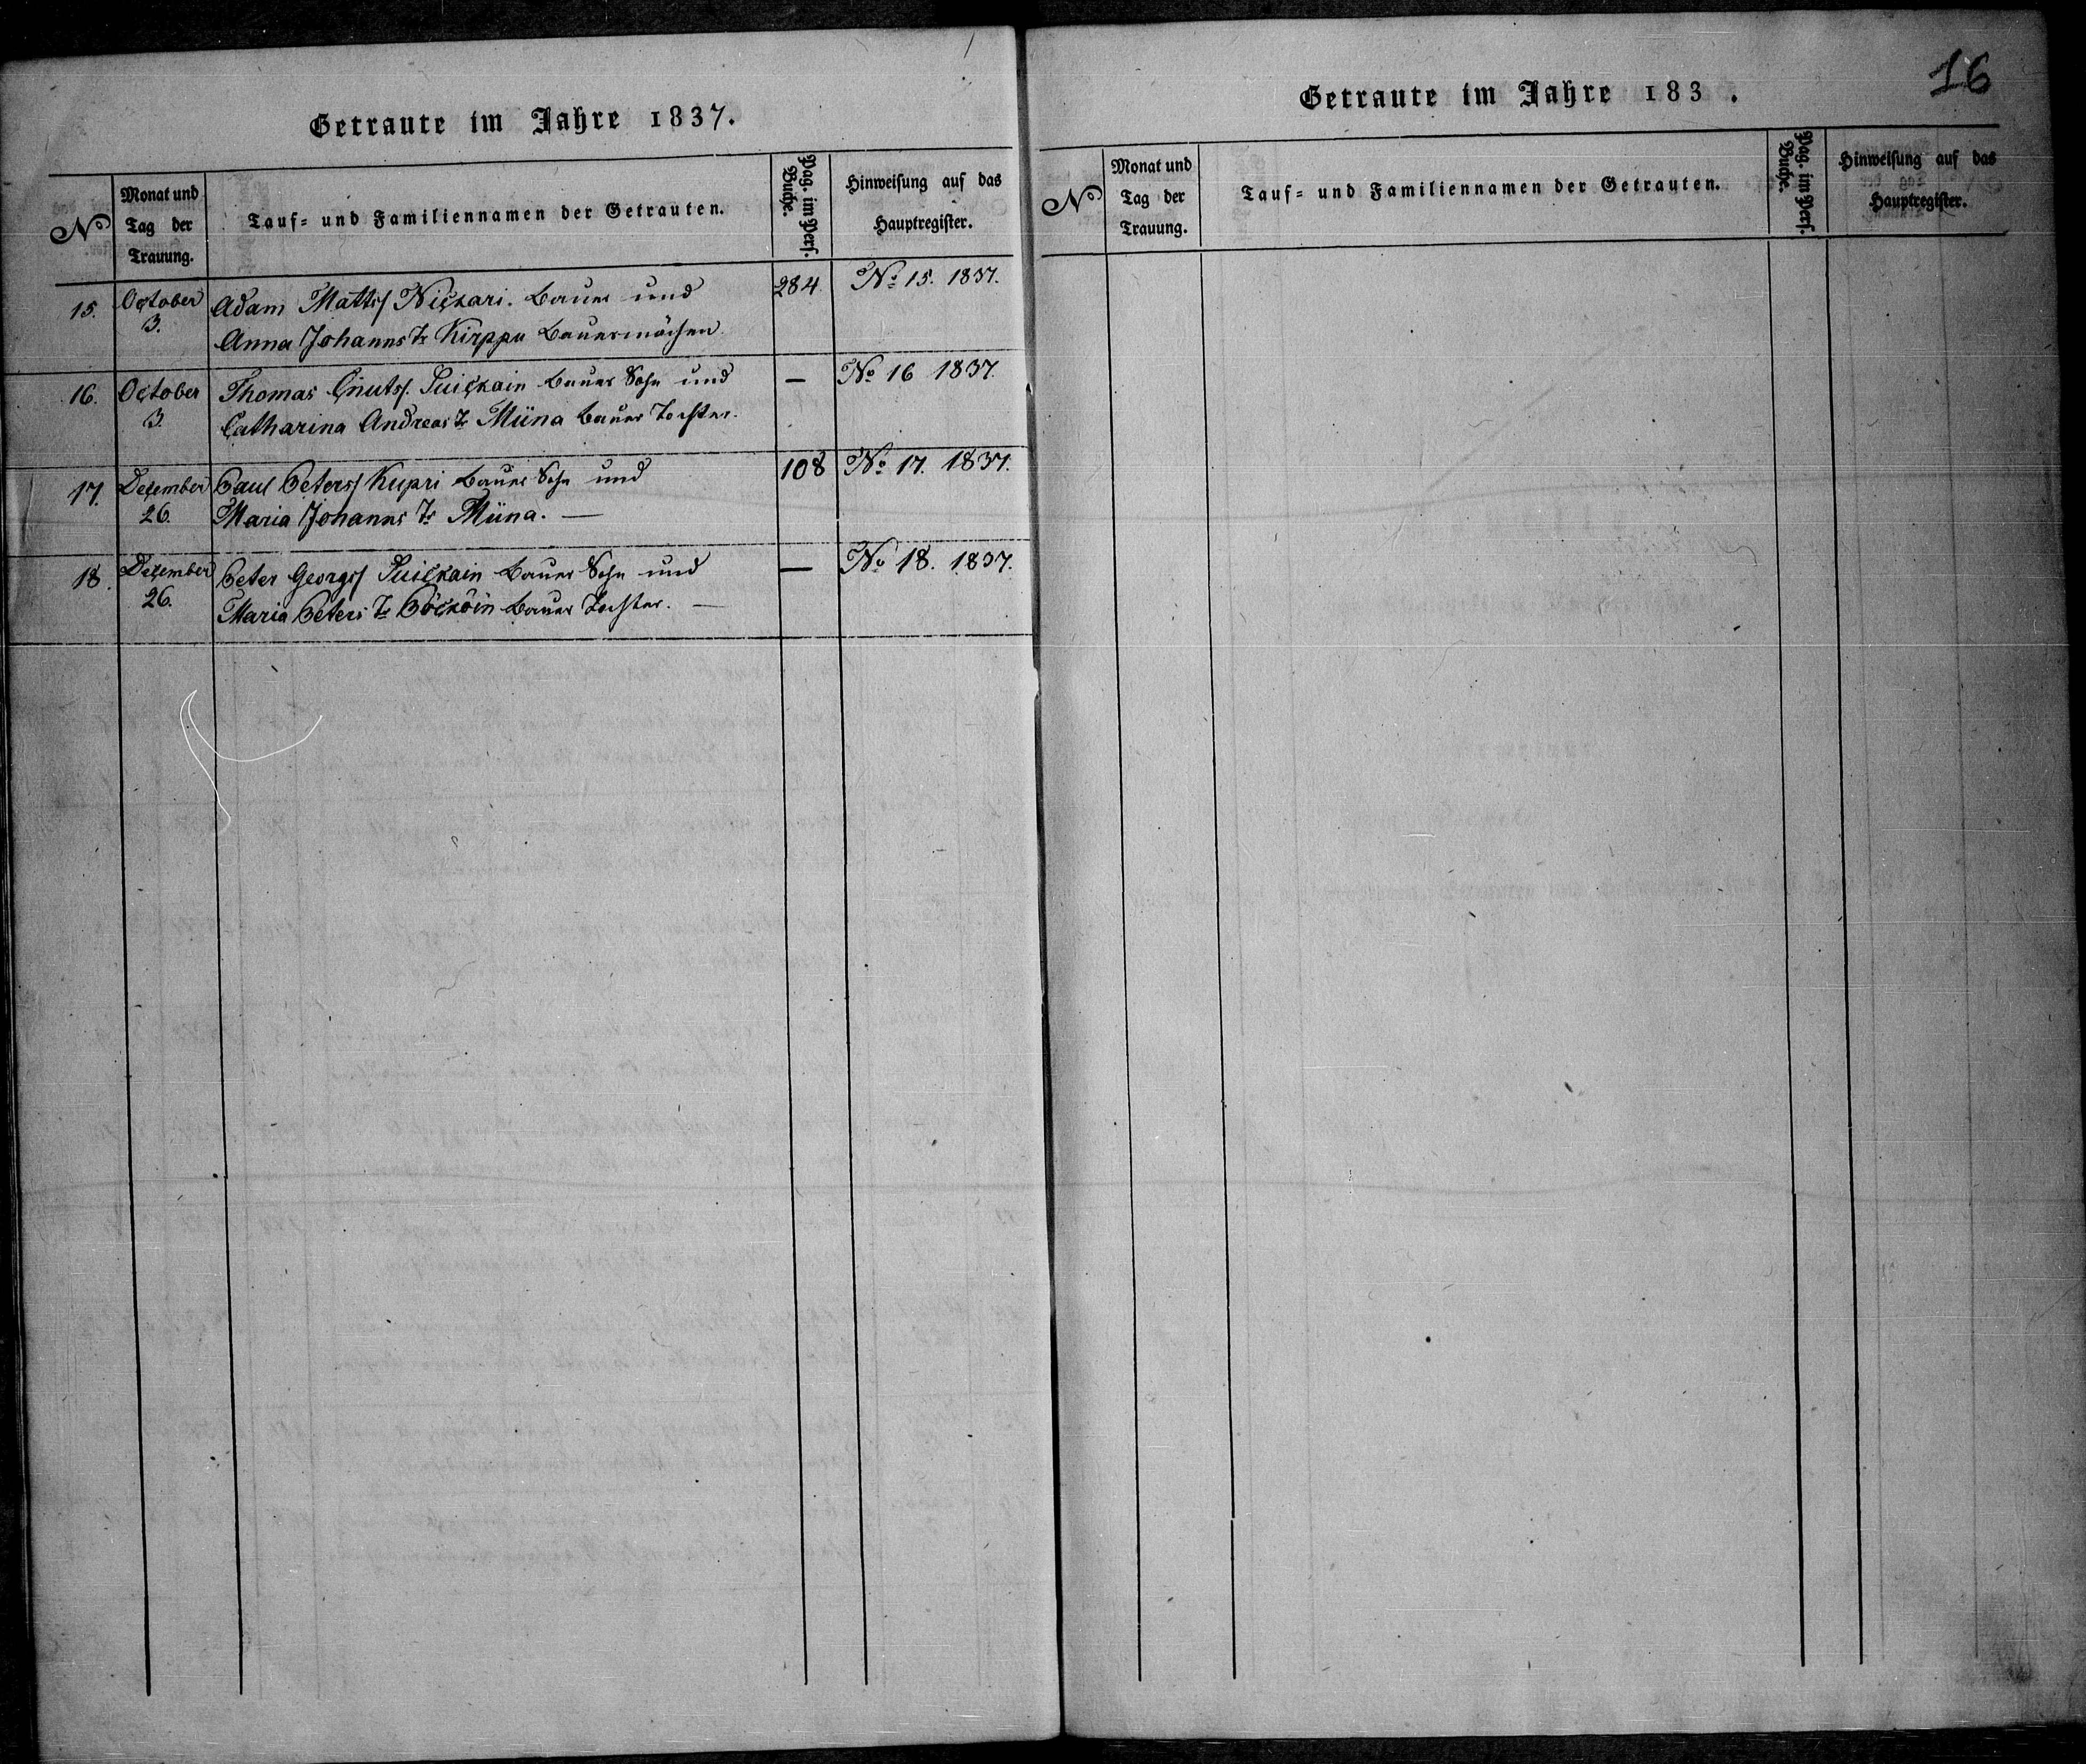 Getraute im Jahre 1837.
No
Monat und
Tag der
Trauung.
Tauf- und Familiennamen der Getrauten.
Pag. im Pers.
Buche.
Hinweisung auf das
Hauptregister.
15. October 3. Adam Matts/ Nickari. Bauer und 284 No 15. 1837.
Anna Johanns Tr Kirppu Bauermädchen
16. October 3. Thomas Cnuts/. Suickain Bauer Sohn und — No 16 1837.
Catharina Andreas Tr Müna Bauer Tochter.
17. Dezember 26. Paul Peters/ Kupri Bauer Sohn und 108 No 17. 1837.
Maria Johanns Tr Müna. —
18. Dezember 26. Peter Georgs/ Suickain Bauer Sohn und — No 18. 1837.
Maria Peters Tr Pöcköin Bauer Tochter. —
16
Getraute im Jahre 183 .
No
Monat und
Tag der
Trauung.
Tauf- und Familiennamen der Getrauten.
Pag. im Pers.
Buche.
Hinweisung auf das
Hauptregister.